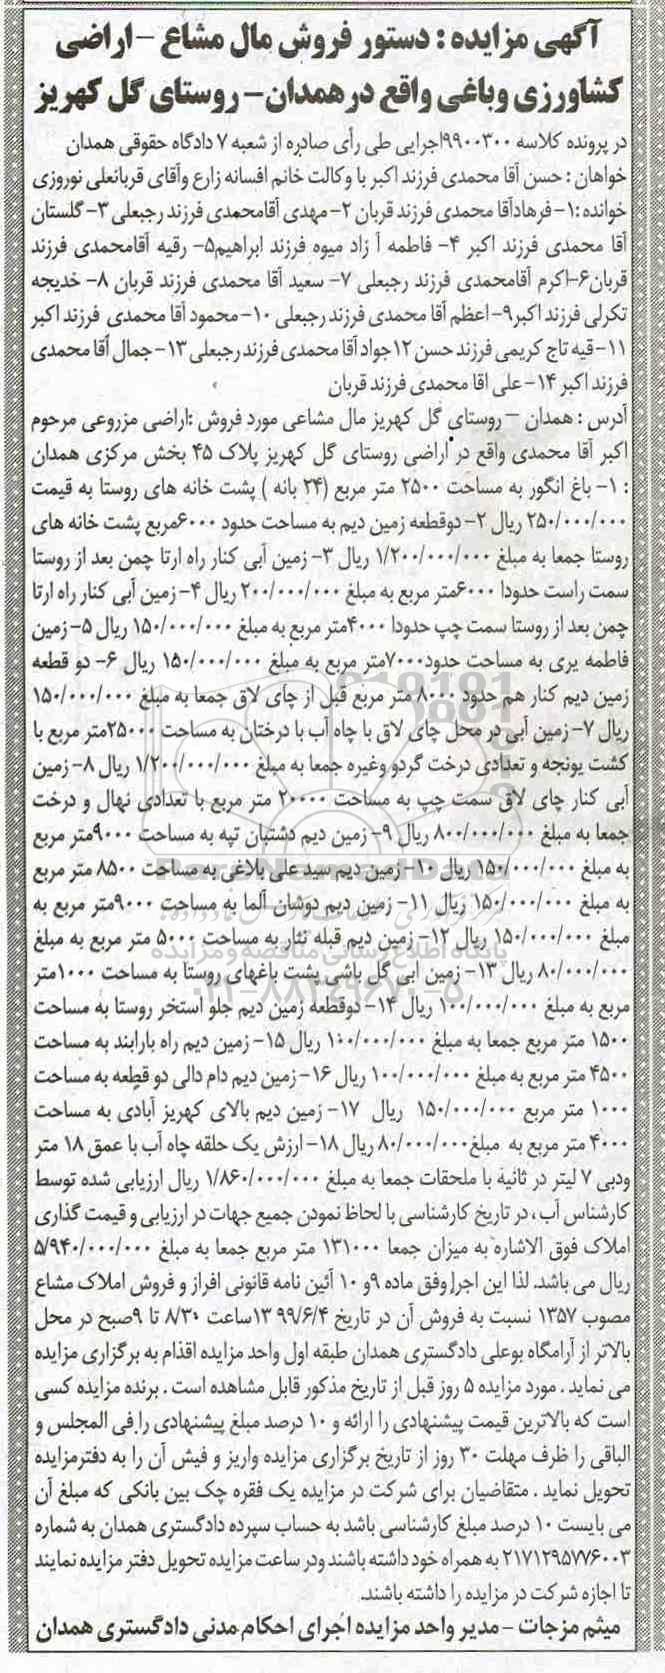 آگهی مزایده : دستور فروش مال مشاع – اراضی
کشاورزی وباغی واقع در همدان- روستای گل کهریز
در پرونده کلاسه ۹۹۰۰۳۰۰اجرایی طی رأی صادره از شعبه ۷ دادگاه حقوقی همدان
خواهان : حسن آقا محمدی فرزند اکبر با وکالت خانم افسانه زارع وآقای قربانعلی نوروزی
خوانده :۱- فرهادآقا محمدی فرزند قربان ۲- مهدی آقامحمدی فرزند رجبعلی ۳- گلستان
آقا محمدی فرزند اکبر ۴- فاطمه آ زاد میوه فرزند ابراهیم۵- رقیه آقامحمدی فرزند
قربان۶-اکرم آقامحمدی فرزند رجبعلی ۷- سعید آقا محمدی فرزند قربان ۸- خدیجه
تکرلی فرزند اکبر۹- اعظم آقا محمدی فرزند رجبعلی ۱۰- محمود آقا محمدی فرزند اکبر
۱۱- قیه تاج کریمی فرزند حسن ۱۲جواد آقا محمدی فرزند رجبعلی ۱۳- جمال آقا محمدی
فرزند اکبر ۱۴- علی اقا محمدی فرزند قربان
آدرس : همدان – روستای گل کهریز مال مشاعی مورد فروش :اراضی مزروعی مرحوم
اکبر آقا محمدی واقع در اراضی روستای گل کهریز پلاک ۴۵ بخش مرکزی همدان
: ۱- باغ انگور به مساحت ۲۵۰۰ متر مربع (۲۴ بانه ) پشت خانه های روستا به قیمت
۲۵۰/۰۰۰/۰۰۰ ریال ۲- دوقطعه زمین دیم به مساحت حدود ۶۰۰۰مربع پشت خانه های
روستا جمعا به مبلغ ۱/۲۰۰/۰۰۰/۰۰۰ ریال ۳- زمین آبی کنار راه ارتا چمن بعد از روستا
سمت راست حدودا ۶۰۰۰متر مربع به مبلغ ۲۰۰/۰۰۰/۰۰۰ ریال ۴- زمین آبی کنار راه ارتا
چمن بعد از روستا سمت چپ حدودا ۴۰۰۰متر مربع به مبلغ ۱۵۰/۰۰۰/۰۰۰ ریال ۵- زمین
فاطمه یری به مساحت حدود۷۰۰۰متر مربع به مبلغ ۱۵۰/۰۰۰/۰۰۰ ریال ۶- دو قطعه
زمین دیم کنار هم حدود ۸۰۰۰ متر مربع قبل از چای لاق جمعا به مبلغ ۱۵۰/۰۰۰/۰۰۰
ریال ۷- زمین آبی در محل چای لاق با چاه آب با درختان به مساحت ۲۵۰۰۰متر مربع با
کشت یونجه و تعدادی درخت گردو وغیره جمعا به مبلغ ۱/۲۰۰/۰۰۰/۰۰۰ ریال ۸- زمین
آبی کنار چای لاق سمت چپ به مساحت ۲۰۰۰۰ متر مربع با تعدادی نهال و درخت
جمعا به مبلغ ۸۰۰/۰۰۰/۰۰۰ ریال ۹- زمین دیم دشتبان تپه به مساحت ۹۰۰۰متر مربع
به مبلغ ۱۵۰/۰۰۰/۰۰۰ ریال ۱۰- زمین دیم سید علی بلاغی به مساحت ۸۵۰۰ متر مربع
به مبلغ ۱۵۰/۰۰۰/۰۰۰ ریال ۱۱- زمین دیم دوشان آلما به مساحت ۹۰۰۰متر مربع به
مبلغ ۱۵۰/۰۰۰/۰۰۰ ریال ۱۲- زمین دیم قبله نثار به مساحت ۵۰۰۰ متر مربع به مبلغ
۸۰/۰۰۰/۰۰۰ ریال ۱۳- زمین آبی گل باشی پشت باغهای روستا به مساحت ۱۰۰۰متر
مربع به مبلغ ۱۰۰/۰۰۰/۰۰۰ ریال ۱۴- دوقطعه زمین دیم جلو استخر روستا به مساحت
۱۵۰۰ متر مربع جمعا به مبلغ ۱۰۰/۰۰۰/۰۰۰ ریال ۱۵- زمین دیم راه بارابند به مساحت
۴۵۰۰ متر مربع به مبلغ ۱۰۰/۰۰۰/۰۰۰ ریال ۱۶- زمین دیم دام دالی دو قطعه به مساحت
۱۰۰۰ متر مربع ۱۵۰/۰۰۰/۰۰۰ ریال ۱۷- زمین دیم بالای کهریز آبادی به مساحت
۴۰۰۰ متر مربع به مبلغ۸۰/۰۰۰/۰۰۰ ریال ۱۸- ارزش یک حلقه چاه آب با عمق ۱۸ متر
ودبی ۷ لیتر در ثانیه با ملحقات جمعا به مبلغ ۱/۸۶۰/۰۰۰/۰۰۰ ریال ارزیابی شده توسط
کارشناس آب ، در تاریخ کارشناسی با لحاظ نمودن جمیع جهات در ارزیابی و قیمت گذاری
املاک فوق الاشاره به میزان جمعا ۱۳۱۰۰۰ متر مربع جمعا به مبلغ ۵/۹۴۰/۰۰۰/۰۰۰
ریال می باشد. لذا این اجرا وفق ماده ۹و ۱۰ آئین نامه قانونی افراز و فروش املاک مشاع
مصوب ۱۳۵۷ نسبت به فروش آن در تاریخ ۱۳۹۹/۶/۴ساعت ۸/۳۰ تا ۹صبح در محل
بالاتر از آرامگاه بوعلی دادگستری همدان طبقه اول واحد مزایده اقدام به برگزاری مزایده
می نماید . مورد مزایده ۵ روز قبل از تاریخ مذکور قابل مشاهده است . برنده مزایده کسی
است که بالاترین قیمت پیشنهادی را ارائه و ۱۰ درصد مبلغ پیشنهادی را فی المجلس و
الباقی را ظرف مهلت ۳۰ روز از تاریخ برگزاری مزایده واریز و فیش آن را به دفترمزایده
تحویل نماید . متقاضیان برای شرکت در مزایده یک فقره چک بین بانکی که مبلغ آن
می بایست ۱۰ درصد مبلغ کارشناسی باشد به حساب سپرده دادگستری همدان به شماره
۲۱۷۱۲۹۵۷۷۶۰۰۳ به همراه خود داشته باشند ودر ساعت مزایده تحویل دفتر مزایده نمایند
تا اجازه شرکت در مزایده را داشته باشند.
میثم مزجات - مدیر واحد مزایده اجرای احکام مدنی دادگستری همدان